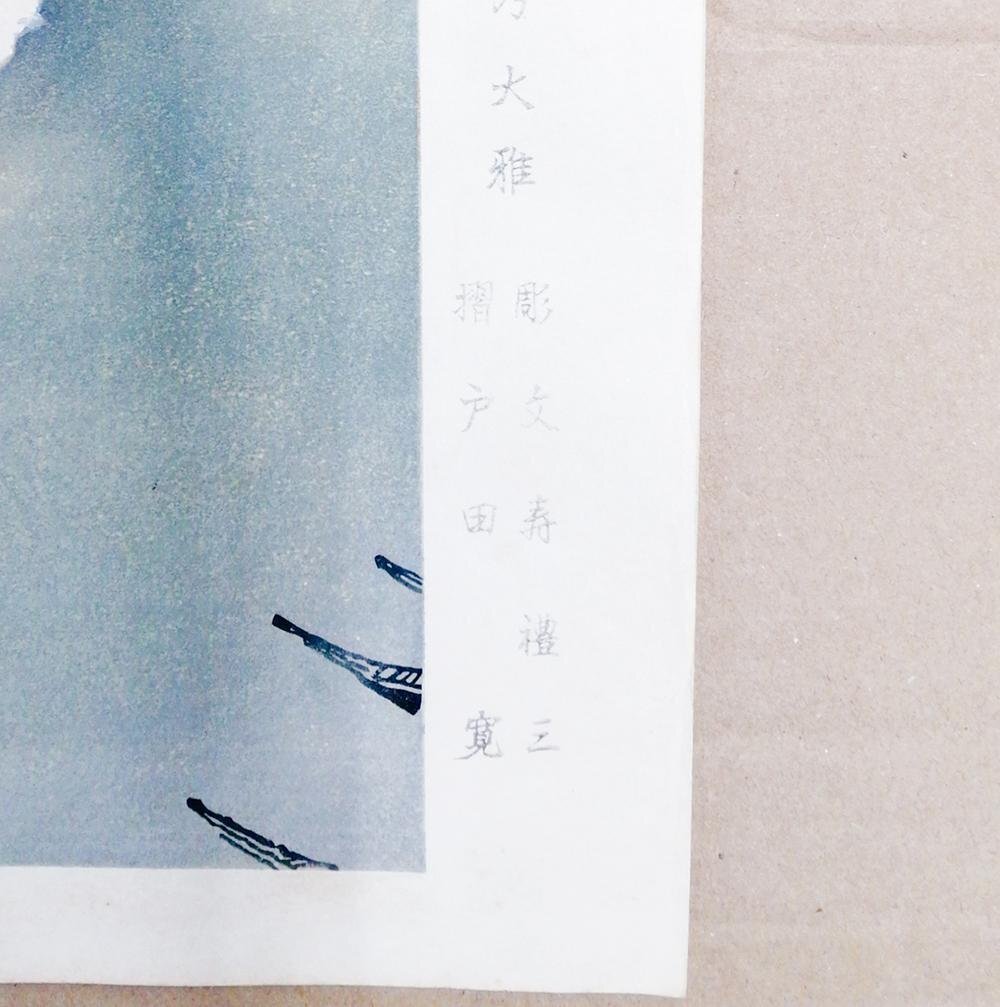 大雅
彫文寿禮三
摺戸田寛